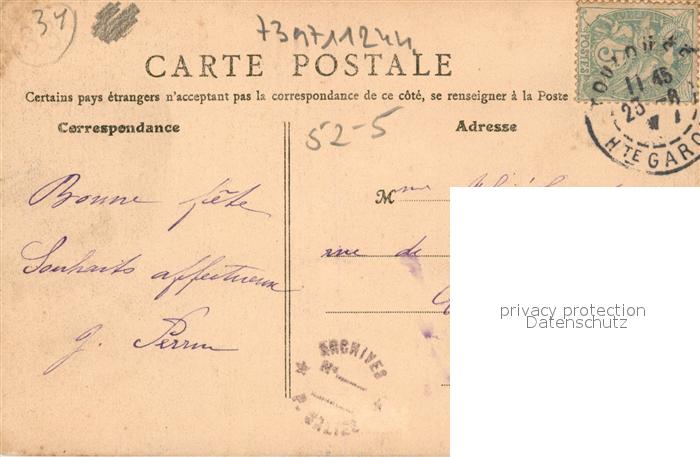 31
739711244
CARTE POSTALE
Certains pays étrangers n'acceptant pas la correspondance de ce côté, se renseigner à la Poste
TOULOUSE
11 45
23 -8
HTE GARO
Correspondance
52-5
Adresse
Bonne fête
Souhaits affectueux
g. Perrin
Mme
rue de
ARCHIVES
No
privacy protection
Datenschutz